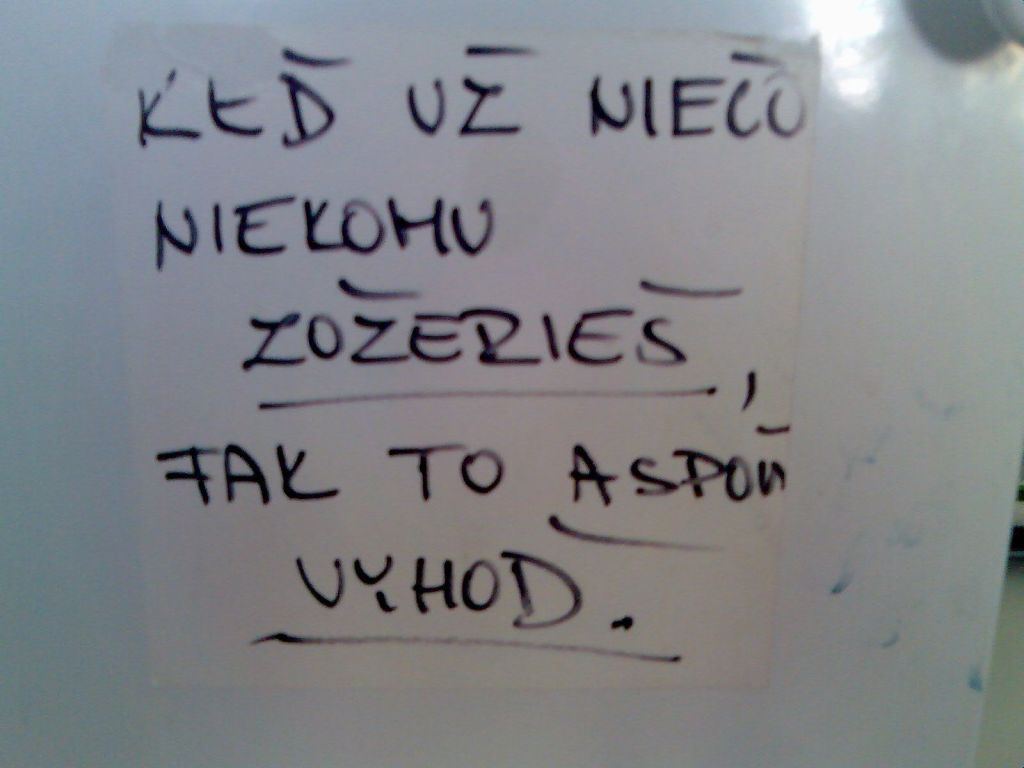 KEĎ UŽ NIEČO
NIEKOMU
ZOŽERIEŠ,
TAK TO ASPOŇ
VYHOD.